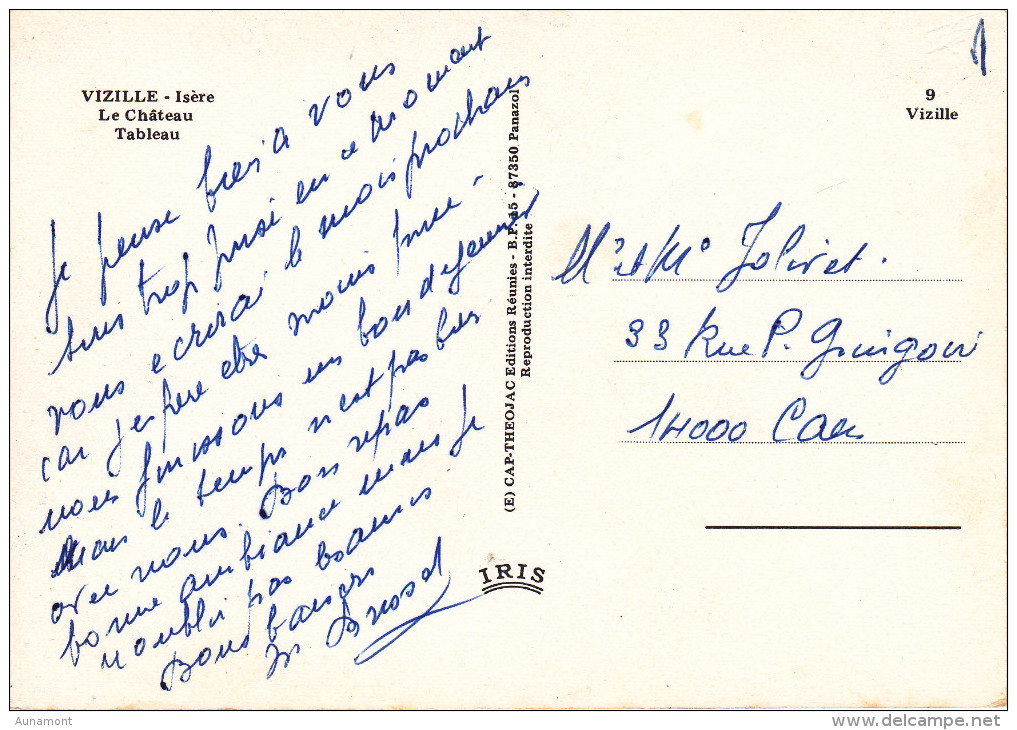 VIZILLE - Isère
Le Château
Tableau
Je pense bien à vous
suis trop prise en ce moment
vous ecrirai le mois prochain
car j'espere etre moins prise
nous finissons un bon dejeuner
Mais le temps n'est pas bien
avec nous. Bon repas
bonne ambiance mais je
n'oublie pas les amis
Bons baisers
(E) CAP-THEOJAC Editions Réunies - B.P. 15 - 87350 Panazol
Reproduction interdite
IRIS
9
Vizille
Mr et Me Jolivet.
33 Rue P. Gringoire
14000 Caen
Aunamont
www.delcampe.net